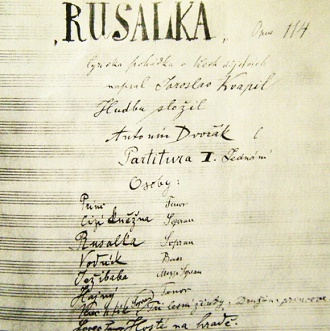 „RUSALKA“ Opus 114
lyrická pohádka o třech dějstvích
napsal Jaroslav Kvapil
Hudbu složil
Antonín Dvořák
Partitura I. Jednání
Osoby:
Princ Tenor
Cizí kněžna Sopran
Rusalka Sopran
Vodník Bass
Ježibaba Mezzo Sopran
Hajný Tenor
Tři lesní žínky. Družina princova
Hosté na hradě.